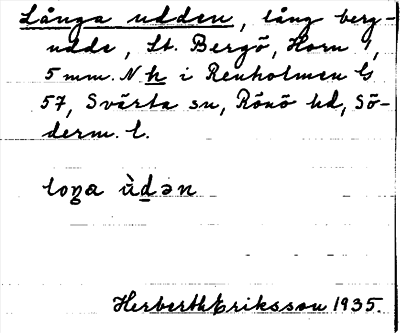 Långa udden, lång berg-
udde, St. Bergö, Horn 1,
5 mm. N h i Renholmen G
57, Svärta sn, Rönö hd, Sö-
derm. l.
loŋa ùdən
Herberth Eriksson 1935.